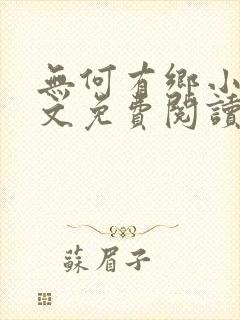 無何有鄉小
文免費閱讀
蘇眉子